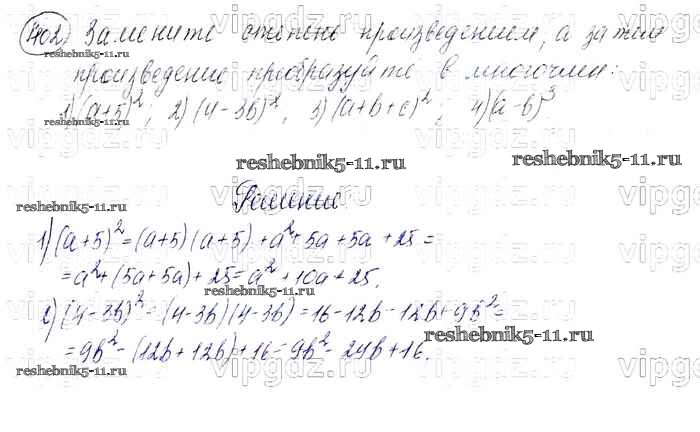 402) Замените степень произведением, а затем
произведение преобразуйте в многочлен:
1) (a+5)², 2) (4-3b)², 3) (a+b+c)²; 4) (a-b)³
reshebnik5-11.ru reshebnik5-11.ru
Решение
reshebnik5-11.ru
1) (a+5)² = (a+5)(a+5) + a² + 5a + 5a + 25 =
= a² + (5a + 5a) + 25 = a² + 10a + 25.
reshebnik5-11.ru
2) (4-3b)² = (4-3b)(4-3b) = 16 - 12b - 12b + 9b² =
reshebnik5-11.ru
= 9b² - (12b + 12b) + 16 = 9b² - 24b + 16.
reshebnik5-11.ru
vipgdz.ru